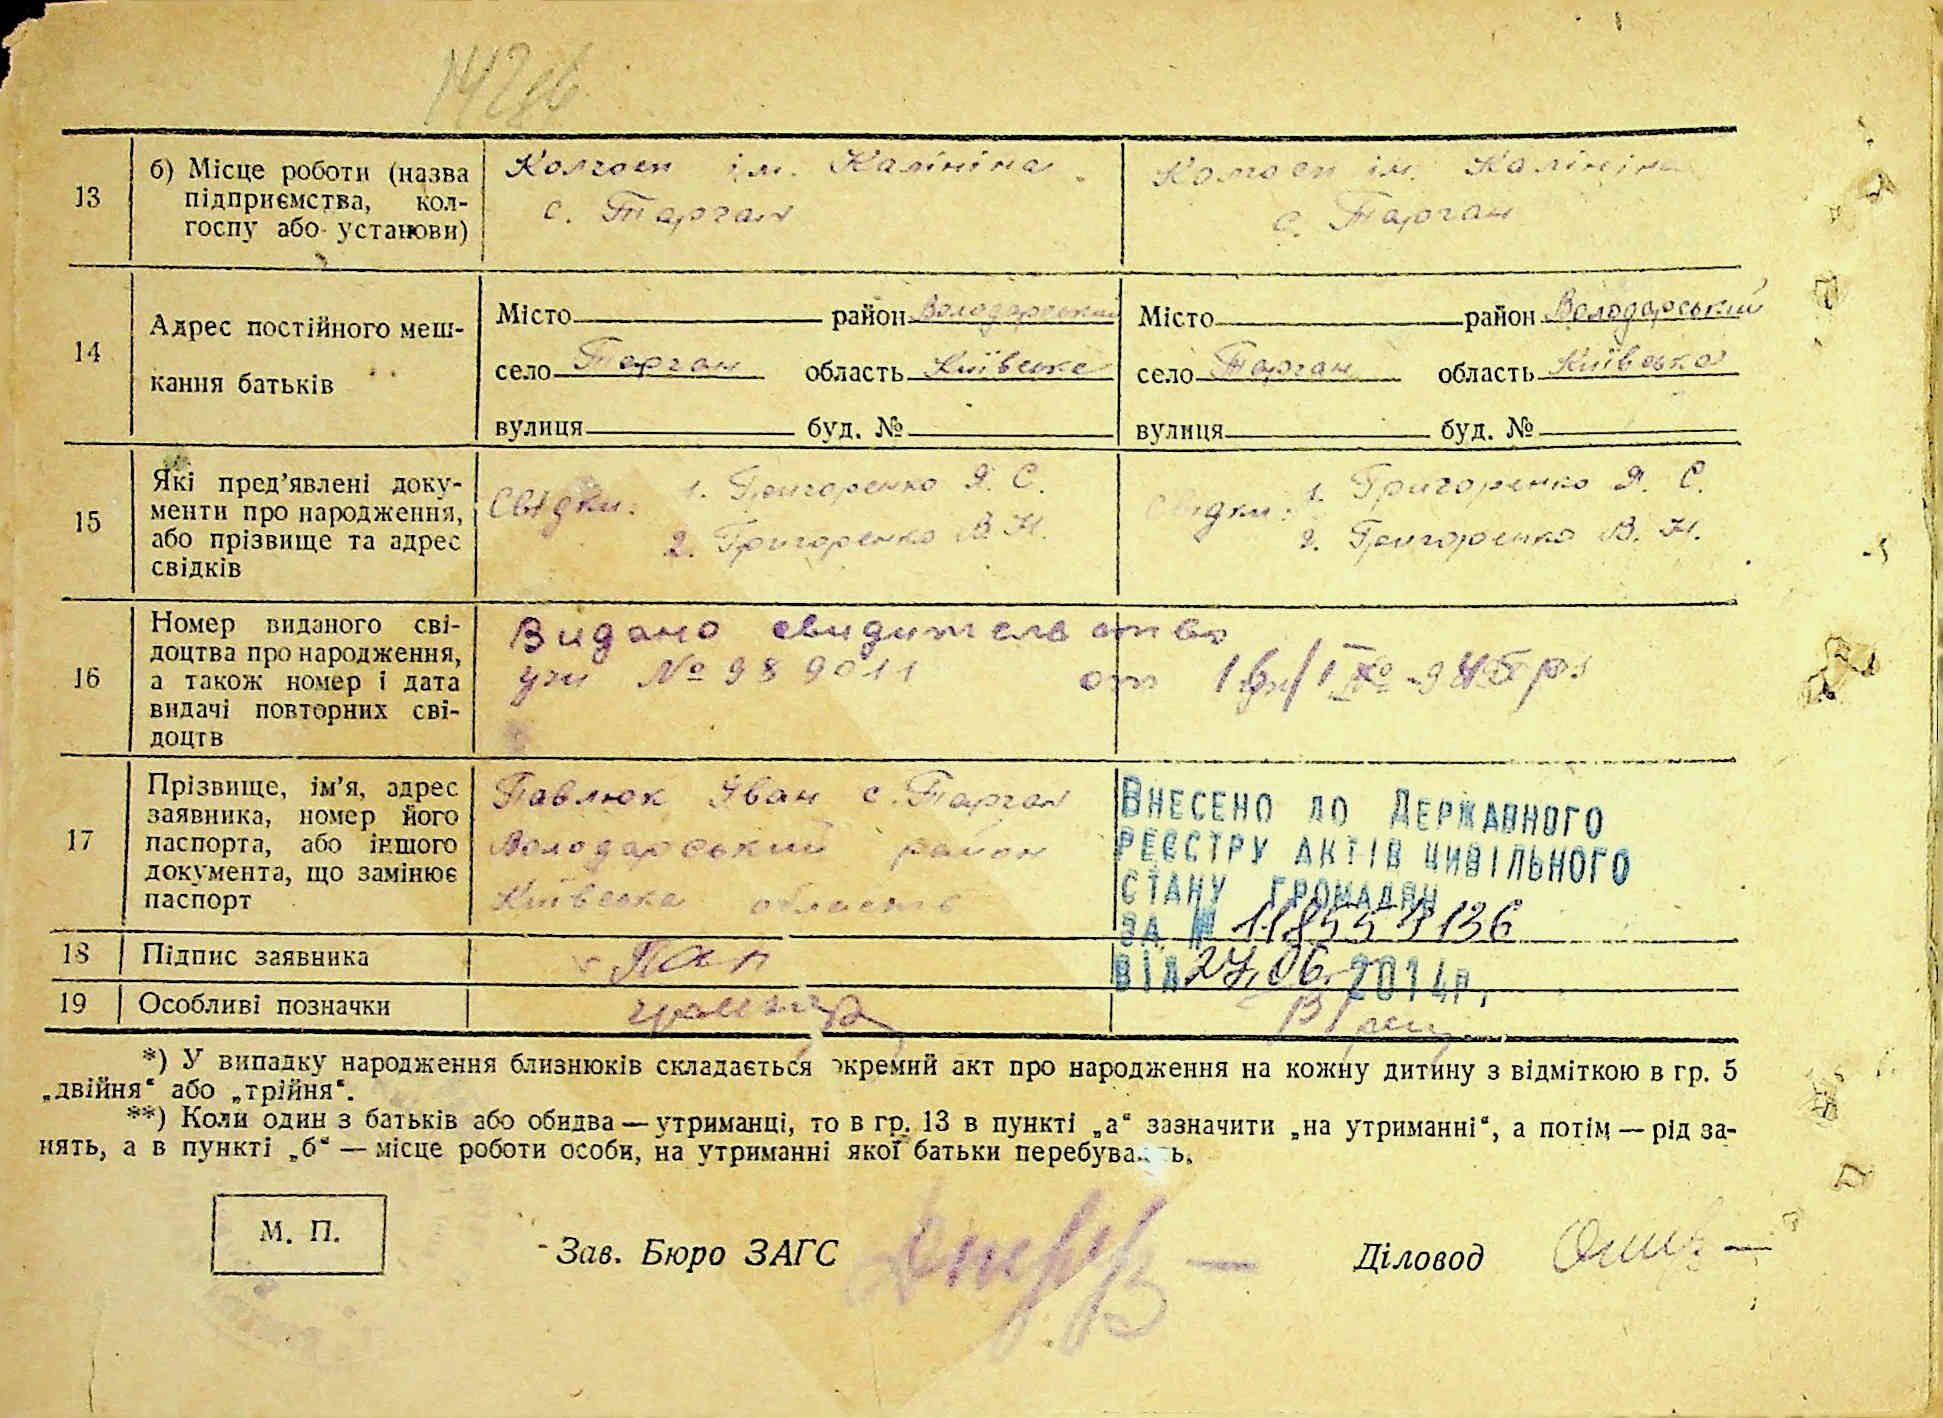 13
б) Місце роботи (назва
підприємства, кол-
госпу або установи)
Колгосп ім. Калініна
с. Тарган
Колгосп ім. Калініна
с. Тарган
14
Адрес постійного меш-
кання батьків
Місто район Володарський
село Тарган область Київська
вулиця буд. №
Місто район Володарський
село Тарган область Київська
вулиця буд. №
15
Які пред'явлені доку-
менти про народження,
або прізвище та адрес
свідків
Свідки: 1. Григоренко Я. С.
2. Григоренко В. Н.
Свідки: 1. Григоренко Я. С.
2. Григоренко В. Н.
16
Номер виданого сві-
доцтва про народження,
а також номер і дата
видачі повторних сві-
доцтв
Видано свидительство
№ 989011 от
17
Прізвище, ім'я, адрес
заявника, номер його
паспорта, або іншого
документа, що замінює
паспорт
Павлюк Іван с. Тарган
Володарський район
Київська область
ВНЕСЕНО ДО ДЕРЖАВНОГО
РЕЄСТРУ АКТІВ ЦИВІЛЬНОГО
СТАНУ ГРОМАДЯН
ЗА №
ВІД 27.06. 2014р.
18
Підпис заявника
19
Особливі позначки
*) У випадку народження близнюків складається окремий акт про народження на кожну дитину з відміткою в гр. 5
„двійня“ або „трійня“.
**) Коли один з батьків або обидва — утриманці, то в гр. 13 в пункті „а“ зазначити „на утриманні“, а потім — рід за-
нять, а в пункті „б“ — місце роботи особи, на утриманні якої батьки перебувають.
М. П.
Зав. Бюро ЗАГС
Діловод